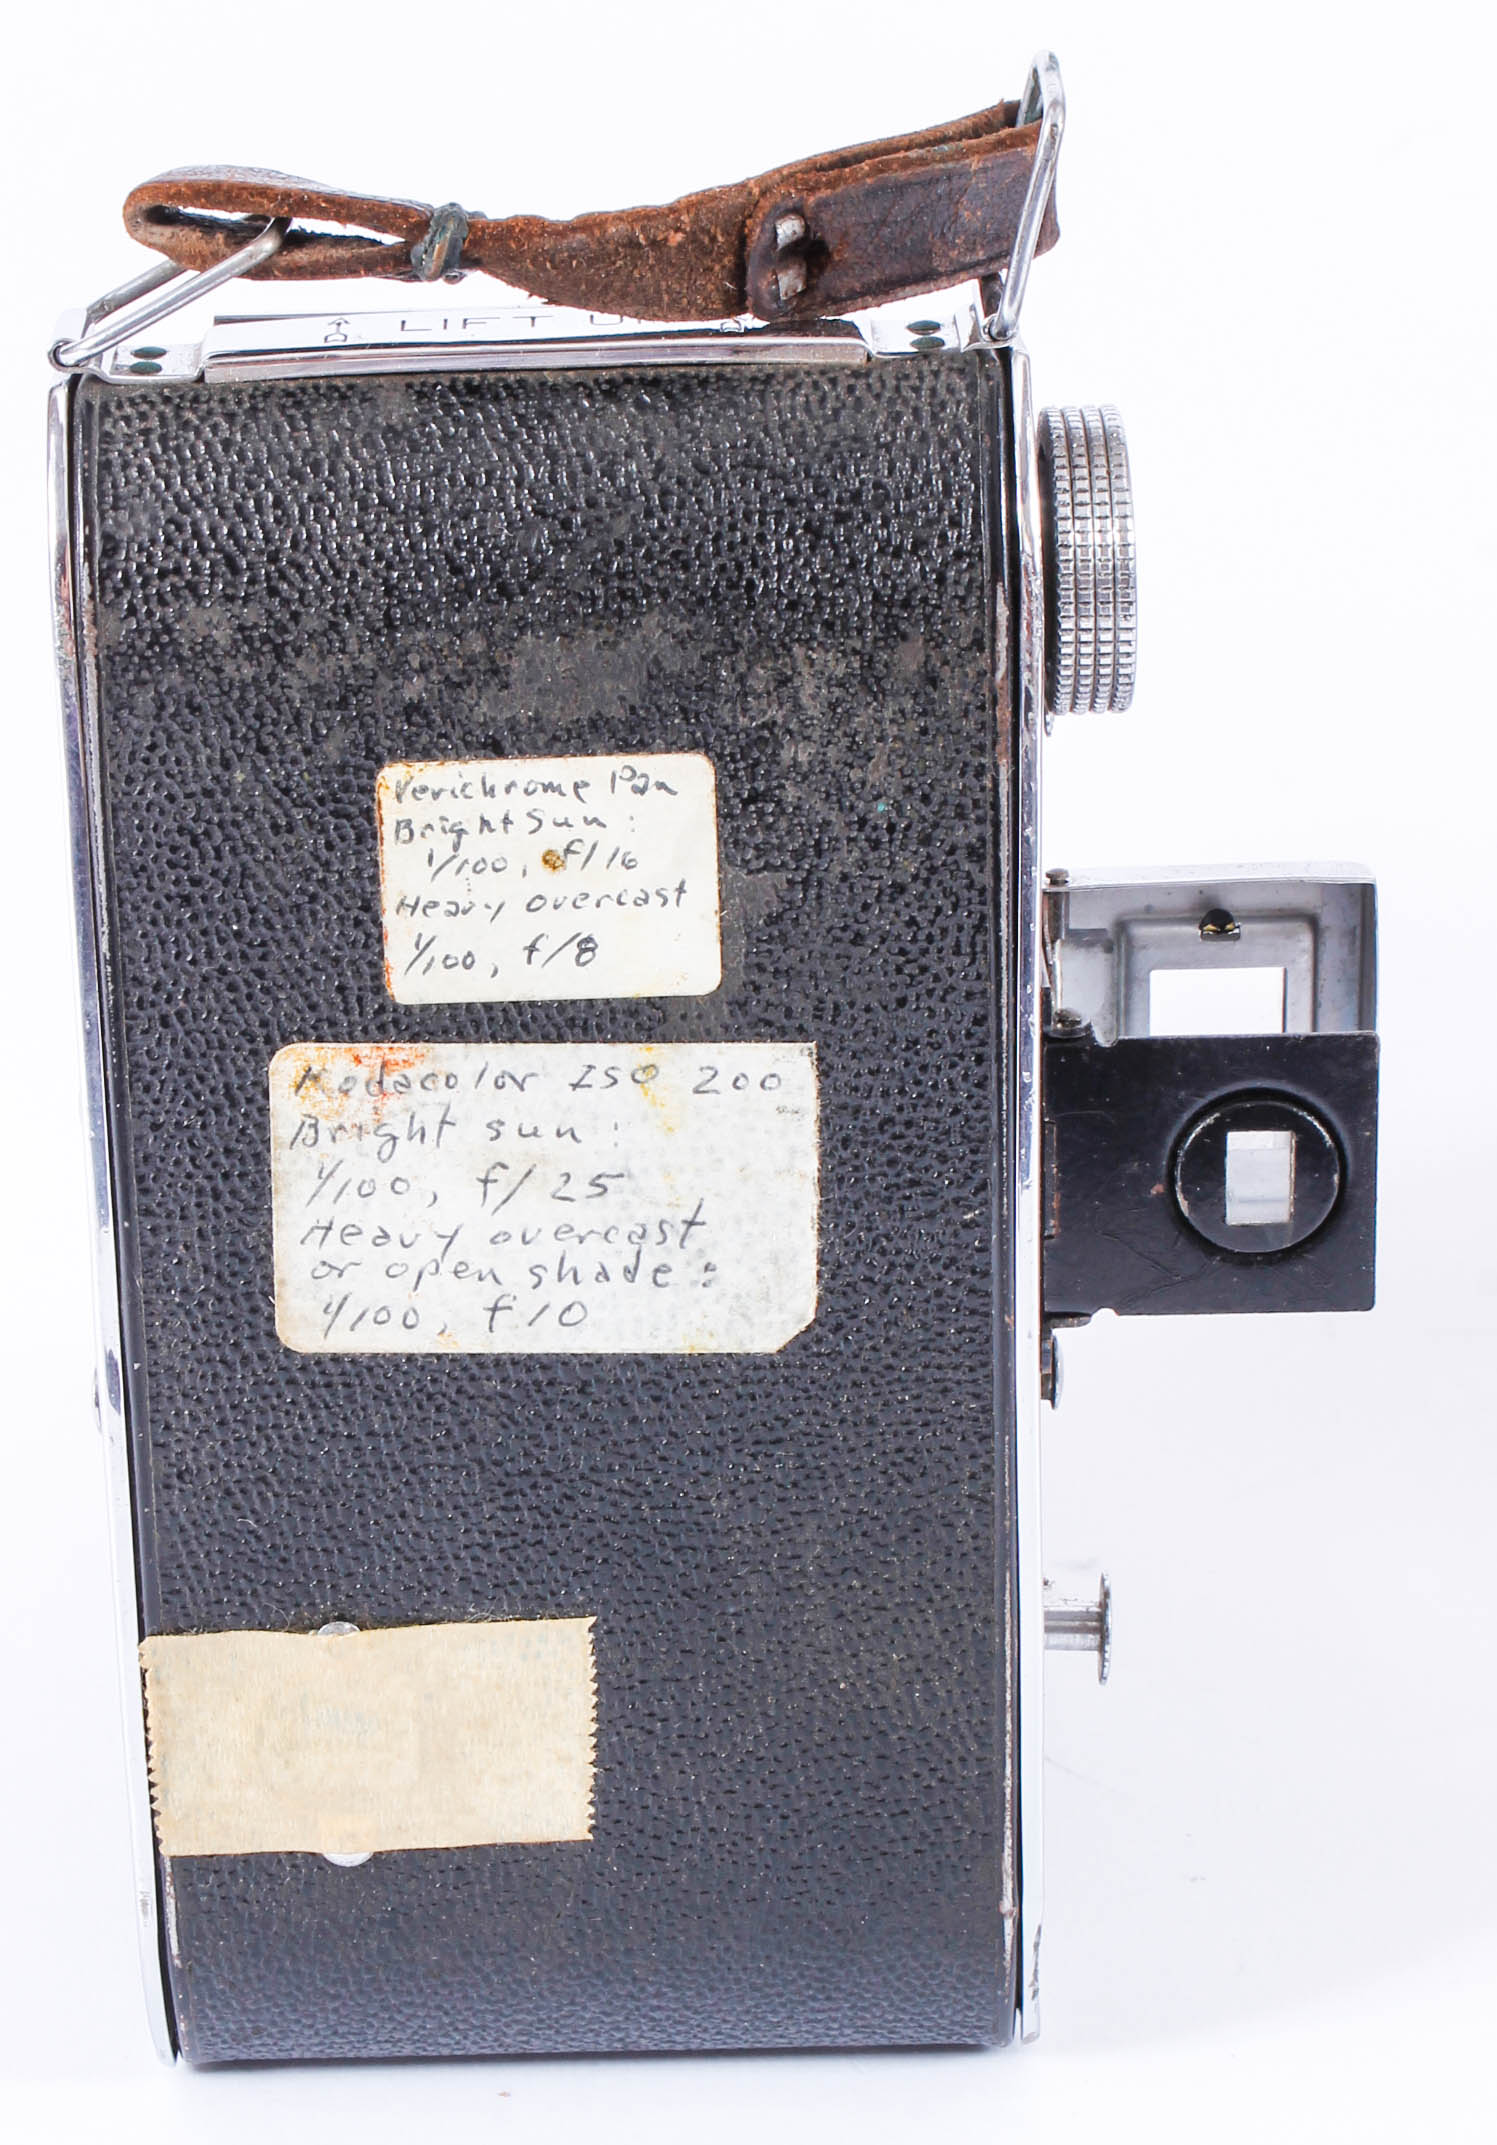 LIFT
Verichrome Pan
Bright Sun :
1/100, f/16
Heavy overcast
1/100, f/8
Kodacolor ISO 200
Bright sun :
1/100, f/25
Heavy overcast
or open shade :
1/100, f10